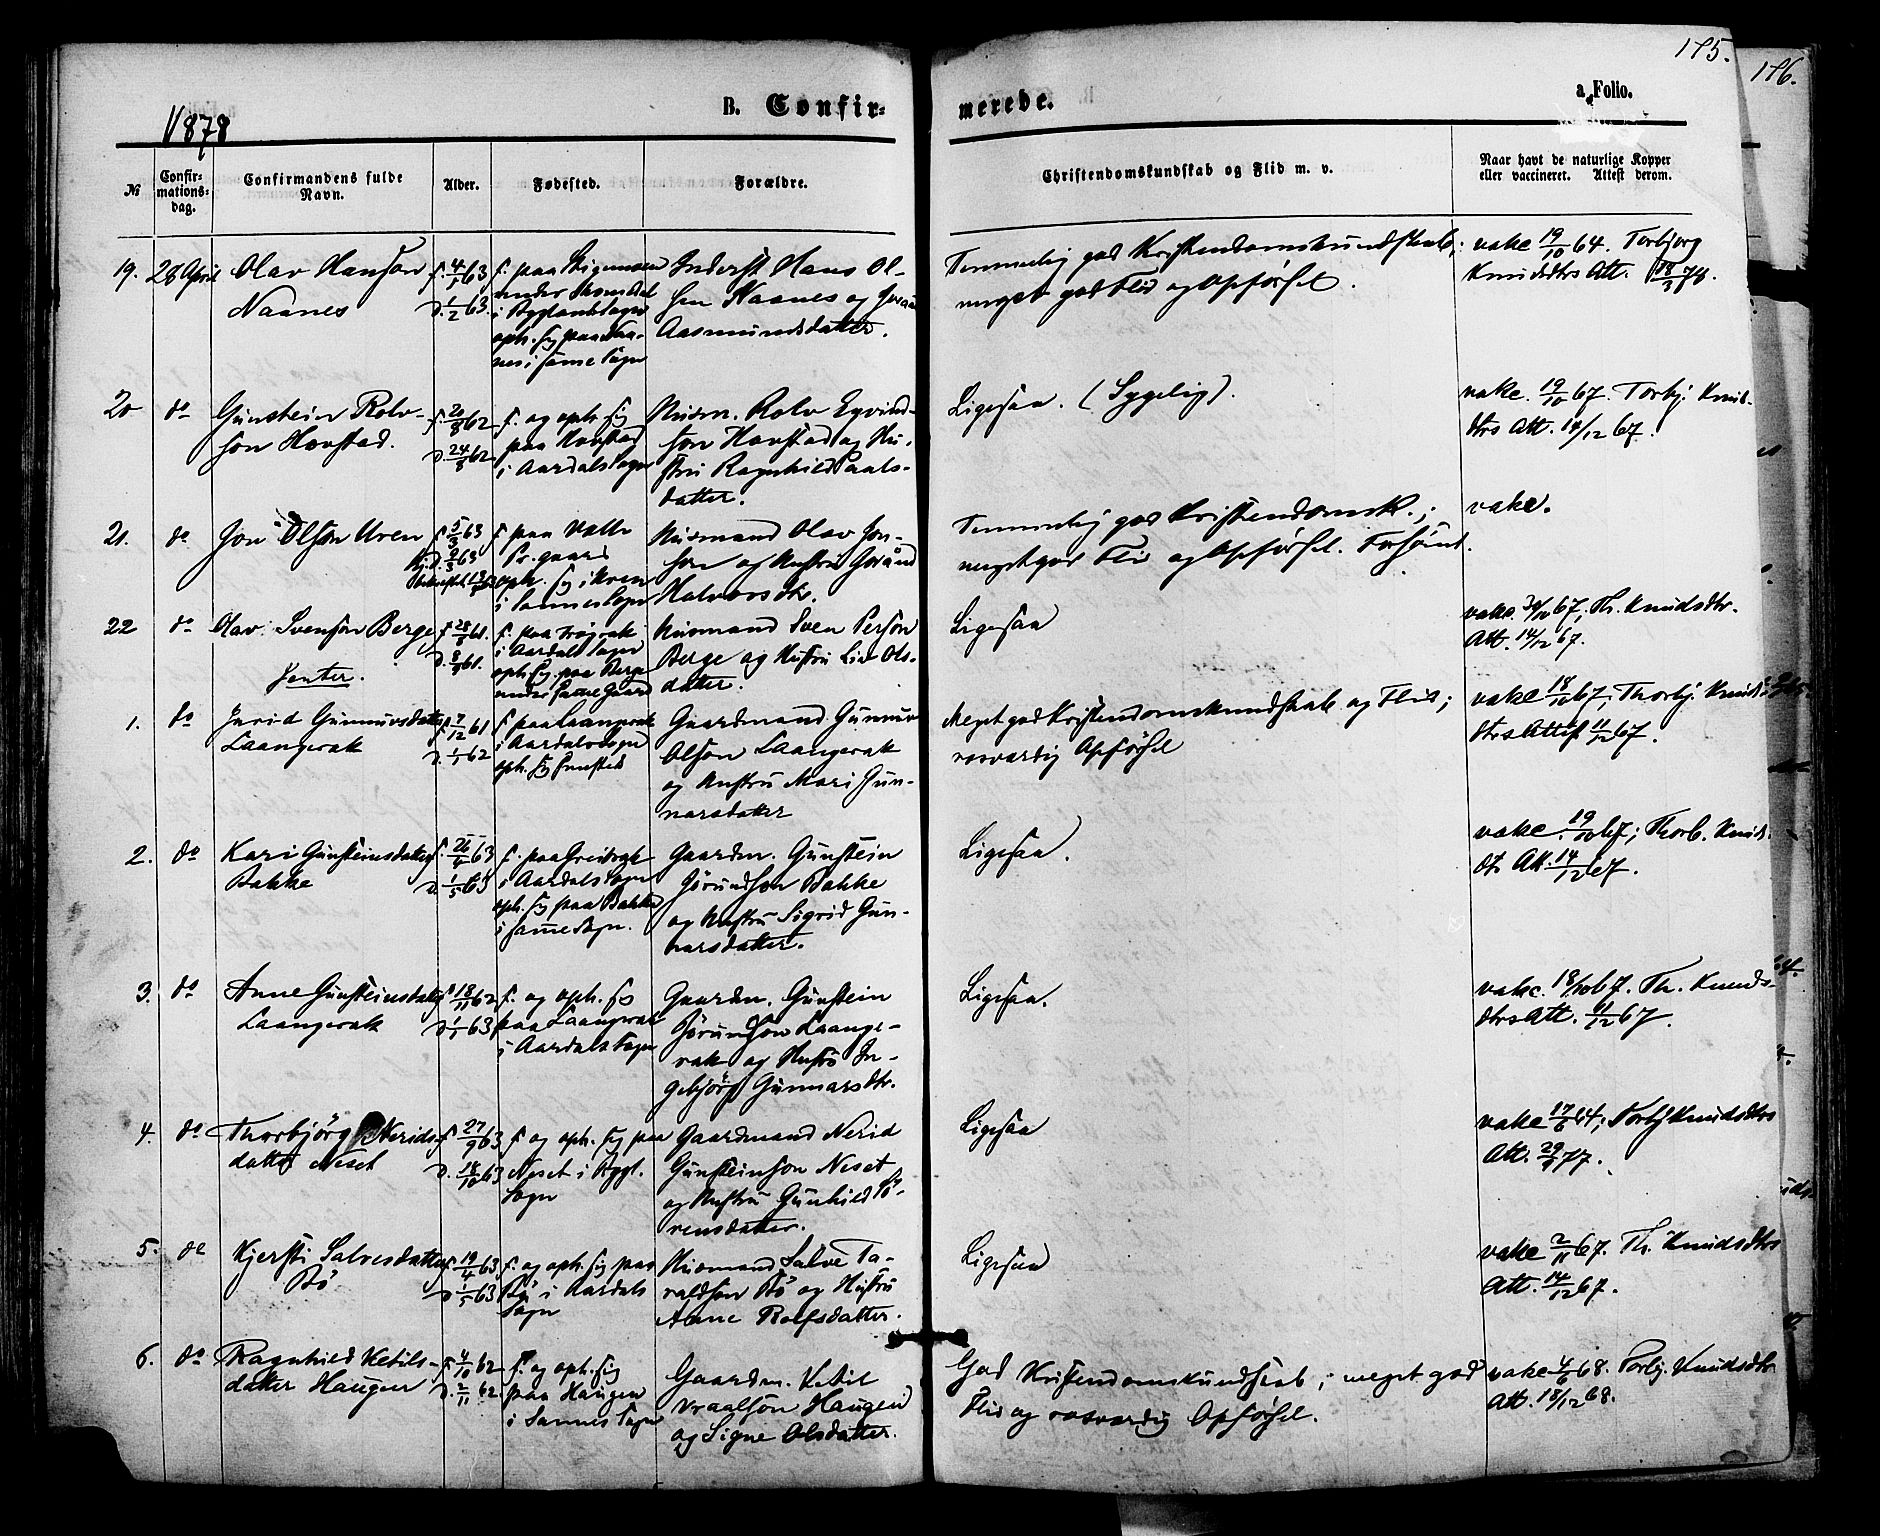 175.
176.
1878
B. Confir-
merede.
a Folio.
№
Confir-
mations-
dag.
Confirmandens fulde
Navn.
Alder.
Fødested.
Forældre.
Christendomskundskab og Flid m. v.
Naar havt de naturlige Kopper
eller vaccineret. Attest derom.
19. 28 April
Olav Hanson
Naanes
f. 4/1 63
d. 1/2 63.
f. paa
under
i Byglands Sogn
oph. sig paa Naa-
nes i samme Sogn
Inderst Hans Ol-
sen Naanes og
Aasmundsdatter.
Temmelig god Kristendomskundskab;
meget god Flid og Opførsel.
vakc 19/10 64. Torbjorg
Knudsdtrs Att. 18/3 78.
20 do
Gunstein Rolv-
son Hovstad.
f. 20/8 62
d. 24/8 62
f. og oph. sig
paa Hovstad
i Aardals Sogn
Husm. Rolv Eyvind-
son Hovstad og Hu-
stru Ragnhild Paals-
datter.
Ligesaa. (Sygelig).
vakc. 19/10 67. Torbj. Knuds-
dtrs Att. 14/12 67.
21. do
Jon Olson Uren
f. 5/3 63
f. paa Valle
Pr. gaard
oph. sig i Uren
i Sannes Sogn
Husmand Olav Jon-
son og Hustru Goraand
Halvorsdtr.
Temmelig god Kristendomsk.;
meget god Flid og Opførsel. Forsømt.
vakc.
22 do
Olav Svenson Berge
f. 28/8 61.
d. 8/9 61.
f. paa
i Aardals Sogn
oph. sig paa Berge
under samme Gaard
Husmand Sven Person
Berge og Hustru Liv Ols-
datter.
Ligesaa
vakc. 30/10 67; Th. Knudsdtr.
Att. 14/12 67.
Jenter.
1. do
Jurid Gunnuvsdatter
Laangerak
f. 7/12 61
d. 1/1 62
f. paa Laangerak
i Aardals Sogn
oph. sig sammested
Gaardmand Gunnuv
Olson Laangerak
og Hustru Mari Gun-
narsdatter
Meget god Kristendomskundskab og Flid;
rosværdig Opførsel
vakc 18/10 67; Thorbj. Knuds-
dtrs Attest 11/12 67.
2. do
Kari Gunsteinsdatter
Bakke
f. 26/4 63
d. 1/5 63
f. paa Greibrok
i Aardals Sogn
oph. sig paa Bakke
i samme Sogn.
Gaardm. Gunstein
Jørundson Bakke
og Hustru Sigrid Gun-
narsdatter.
Ligesaa.
vakc 19/10 67; Thorb. Knuds-
dt. Att. 14/12 67.
3. do
Anne Gunsteinsdatter
Laangerak
f. 18/11 62
d. 1/1 63
f. og oph. sig
paa Laangerak
i Aardals Sogn
Gaardm. Gunstein
Jørundson Laange-
rak og Hustru In-
gebjörg Gunnarsdtr.
Ligesaa.
vakc. 18/10 67. Th. Knuds-
dtrs Att. 11/12 67.
4. do
Thorbjörg Nerids-
datter Neset
f. 27/9 63
d. 18/10 63
f. og oph. sig paa
Neset i Bygl.
Sogn
Gaardmand Nerid
Gunsteinson Neset
og Hustru Gunhild Sö-
rensdatter.
Ligesaa
vakc 17/6 64; Torbj Knudsdtrs
Att. 29/9 77.
5. do
Kjersti Salvesdatter
Bö
f. 19/4 63
d. 1/5 63
f. og oph. sig paa
Bö i Aardals
Sogn
Husmand Salve Ta-
raldson Bö og Hustru
Anne Rolfsdatter.
Ligesaa
vakc 2/11 67. Th. Knudsdtrs
Att. 14/12 67.
6. do
Ragnhild Ketils-
datter Haugen
f. 4/10 62
d. 2/11 62.
f. og oph. sig
paa Haugen
i Sannes Sogn
Gaardm. Ketil
Vraalson Haugen
og Signe Olsdatter.
God Kristendomskundskab; meget god
Flid og rosværdig Opførsel.
vakc 4/6 68. Torbj. Knudsdtr.
Att. 18/12 68.